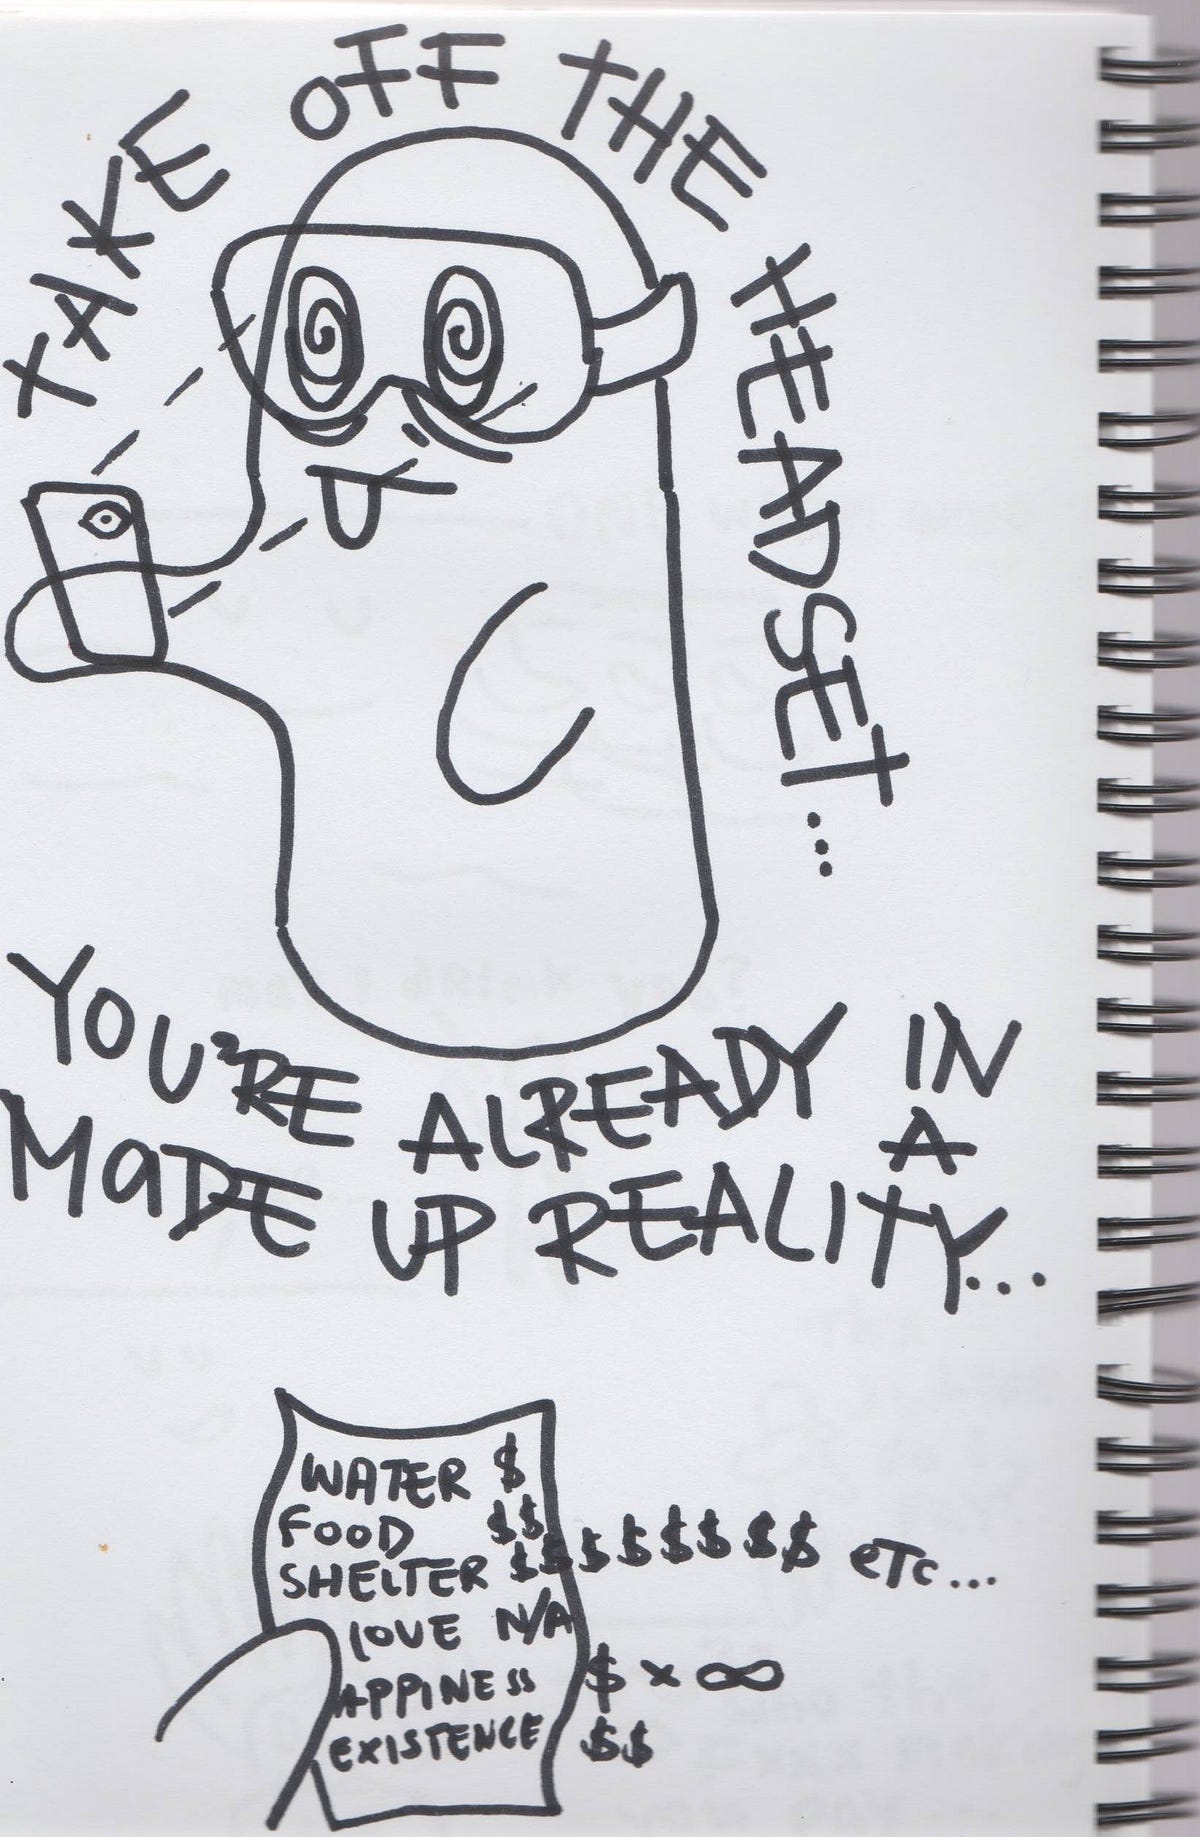 TAKE OFF THE HEADSET...
YOU'RE ALREADY IN A
MADE UP REALITY...
WATER $
FOOD $$
SHELTER $$$$$$$$ etc...
LOVE N/A
APPINESS $ x ∞
EXISTENCE $$